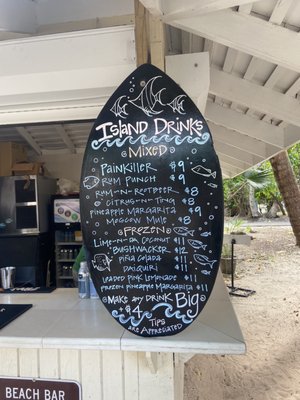 Island Drinks
Mixed
Painkiller $9
Rum Punch $9
Rum-n-Rootbeer $8
Citrus-n-Ting $8
Pineapple Margarita $9
Moscow Mule $9
Frozen
Lime-n-da Coconut $11
Bushwacker $12
Piña Colada $11
Daiquiri $11
Leaded Pink Lemonade $11
Frozen Pineapple Margarita $11
Make any Drink Big
$4
Tips
are Appreciated
BEACH BAR